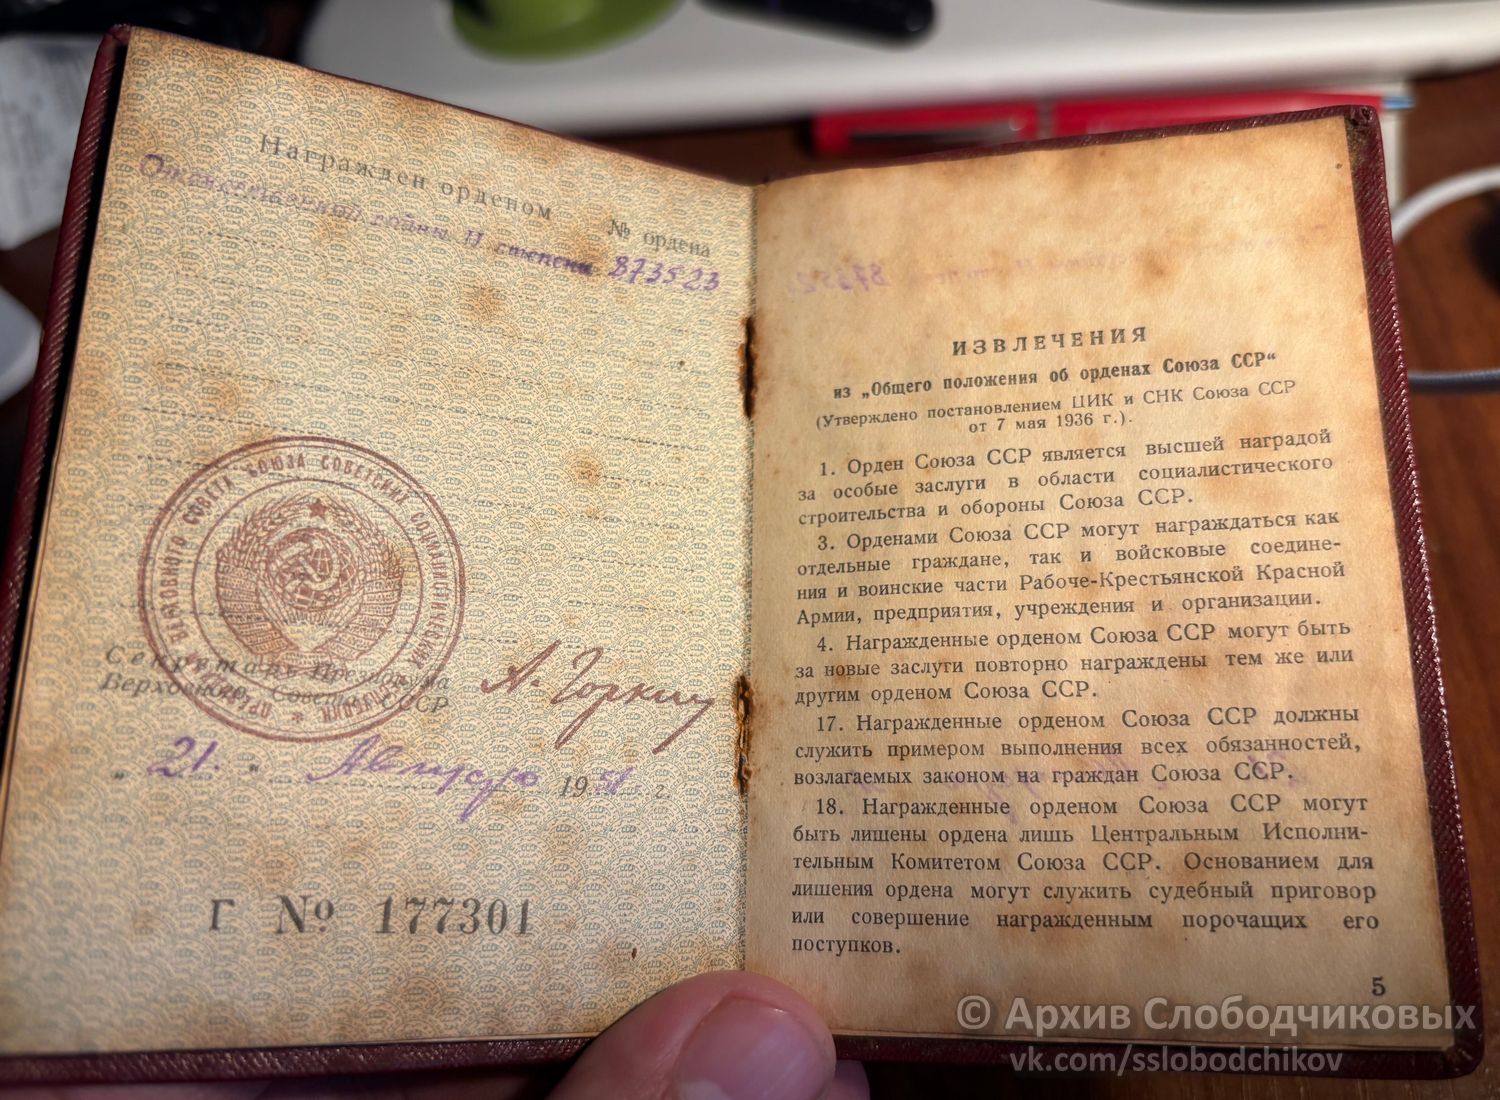 Награжден орденом
№ ордена
Отечественной войны II степени 873523
ПРЕЗИДИУМ ВЕРХОВНОГО СОВЕТА СОЮЗА СОВЕТСКИХ СОЦИАЛИСТИЧЕСКИХ
Секретарь Президиума
Верховного Совета СССР
А. Горкин
„ 21. “ Августа 1951 г.
Г № 177301
ИЗВЛЕЧЕНИЯ
из „Общего положения об орденах Союза ССР“
(Утверждено постановлением ЦИК и СНК Союза ССР
от 7 мая 1936 г.).
1. Орден Союза ССР является высшей наградой
за особые заслуги в области социалистического
строительства и обороны Союза ССР.
3. Орденами Союза ССР могут награждаться как
отдельные граждане, так и войсковые соедине-
ния и воинские части Рабоче-Крестьянской Красной
Армии, предприятия, учреждения и организации.
4. Награжденные орденом Союза ССР могут быть
за новые заслуги повторно награждены тем же или
другим орденом Союза ССР.
17. Награжденные орденом Союза ССР должны
служить примером выполнения всех обязанностей,
возлагаемых законом на граждан Союза ССР.
18. Награжденные орденом Союза ССР могут
быть лишены ордена лишь Центральным Исполни-
тельным Комитетом Союза ССР. Основанием для
лишения ордена могут служить судебный приговор
или совершение награжденным порочащих его
поступков.
5
© Архив Слободчиковых
vk.com/sslobodchikov